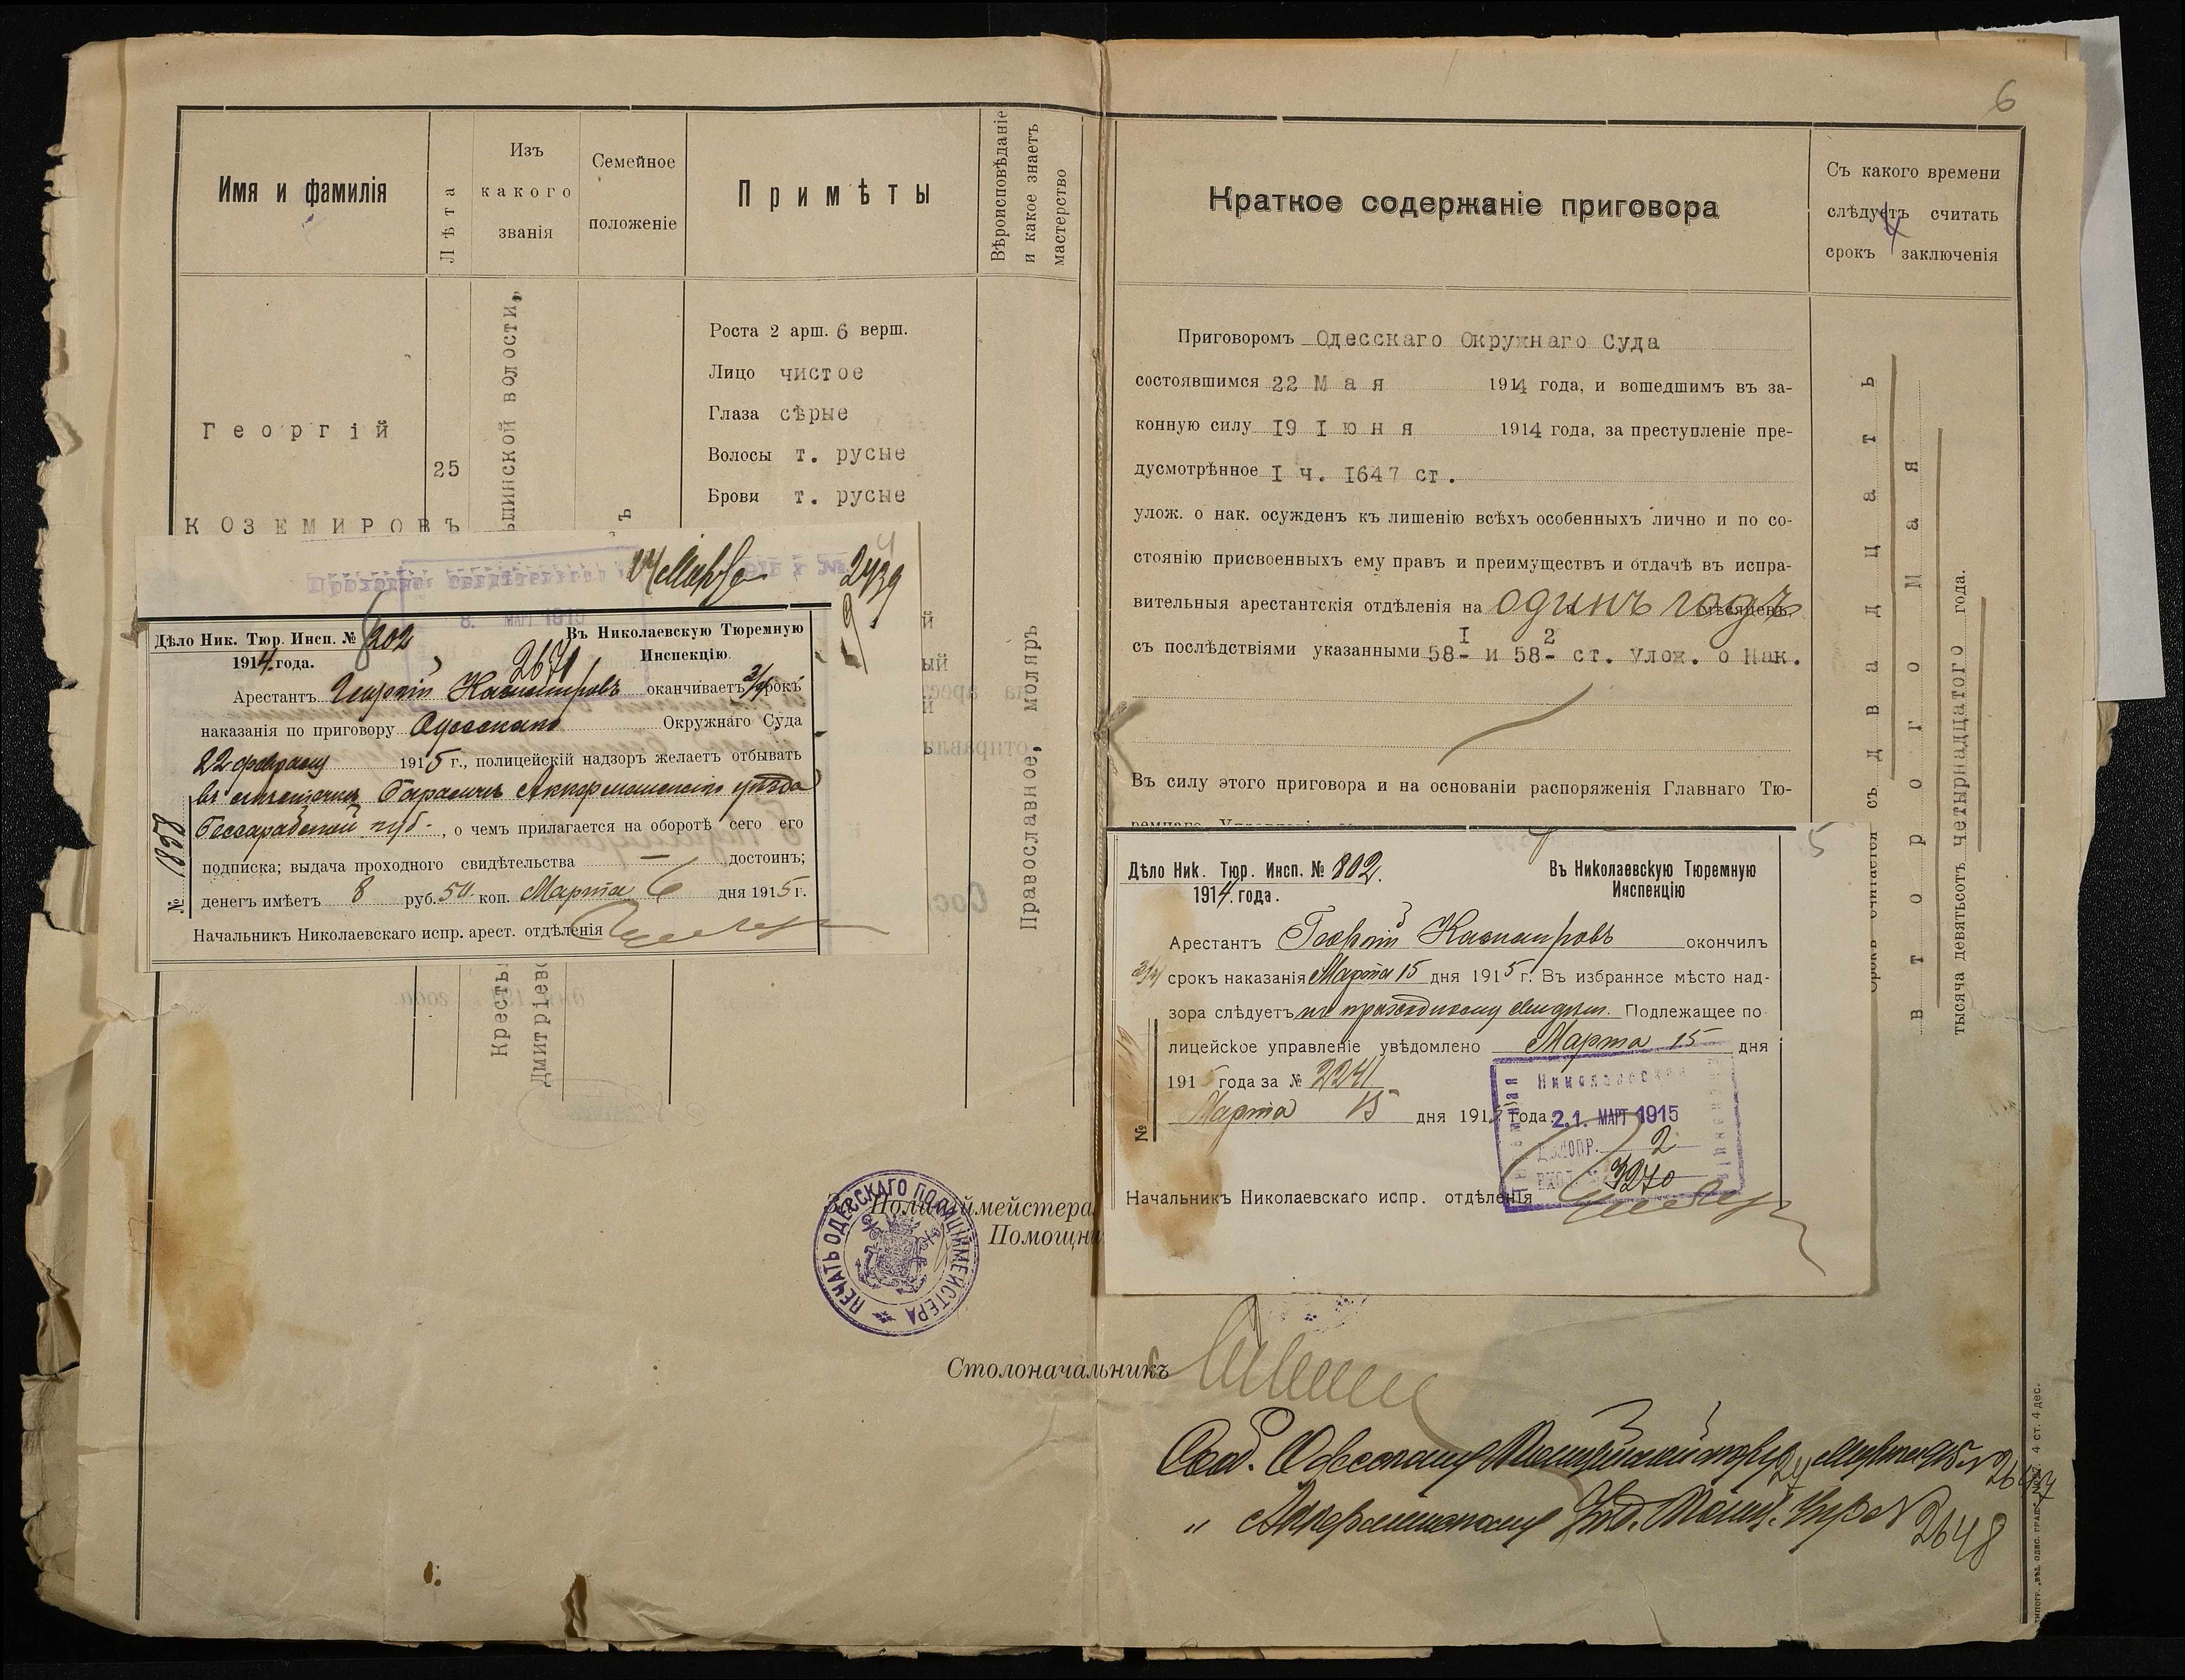 6
Имя и фамилія
Лѣта
Изъ
какого
званія
Семейное
положеніе
Примѣты
Вѣроисповѣданіе
и какое знаетъ
мастерство
Георгій
КОЗЕМИРОВЪ
25
ьшинской волости,
Кресть
Дмитріев
ъ
Роста 2 арш. 6 верш.
Лицо чистое
Глаза сѣрые
Волосы т. русые
Брови т. русые
Православное, моляръ
14 Марта
2439
8. МАРТ 1915
Дѣло Ник. Тюр. Инсп. № 802
1914 года.
Въ Николаевскую Тюремную
Инспекцію.
2671
Арестантъ Георгій оканчиваетъ срокъ
наказанія по приговору Одесскаго Окружнаго Суда
22 февраля 1915 г., полицейскій надзоръ желаетъ отбывать
въ Аккерманскаго уѣзда
Бессарабской губ., о чемъ прилагается на оборотѣ сего его
подписка; выдача проходного свидѣтельства — достоинъ;
денегъ имѣетъ 8 руб. 50 коп. Марта 6 дня 1915 г.
№ 1858
Начальникъ Николаевскаго испр. арест. отдѣленія
ПЕЧАТЬ ОДЕССКАГО ПОЛИЦІЙМЕЙСТЕРА
Полиціймейстера
Помощни
Столоначальникъ
Краткое содержаніе приговора
Съ какого времени
слѣдуетъ считать
срокъ заключенія
Приговоромъ Одесскаго Окружнаго Суда
состоявшимся 22 Мая 1914 года, и вошедшимъ въ за-
конную силу 19 Іюня 1914 года, за преступленіе пре-
дусмотрѣнное I ч. 1647 ст.
улож. о нак. осужденъ къ лишенію всѣхъ особенныхъ лично и по со-
стоянію присвоенныхъ ему правъ и преимуществъ и отдачѣ въ испра-
вительныя арестантскія отдѣленія на одинъ годъ мѣсяцевъ
съ послѣдствіями указанными 58-I и 58-2 ст. Улож. о Нак.
Въ силу этого приговора и на основаніи распоряженія Главнаго Тю-
Срокъ считается съ двадцать
второго Мая
тысяча девятьсотъ четырнадцатого года.
5
Дѣло Ник. Тюр. Инсп. № 802.
1914 года.
Въ Николаевскую Тюремную
Инспекцію
Арестантъ Георгій окончилъ
срокъ наказанія Марта 15 дня 1915 г. Въ избранное мѣсто над-
зора слѣдуетъ по проходному свидѣт. Подлежащее по
лицейское управленіе увѣдомлено Марта 15 дня
1915 года за № 2241
Марта 15 дня 191 года.
№
Николаевская
21. МАРТ 1915
ДѢЛОПР. 2
ВХОД. 3270
Начальникъ Николаевскаго испр. отдѣленія
Одесскому Полиціймейстеру 24 Марта 915 № 2647
" Аккерманскому Уѣзд. Полиц. Упр. № 2648